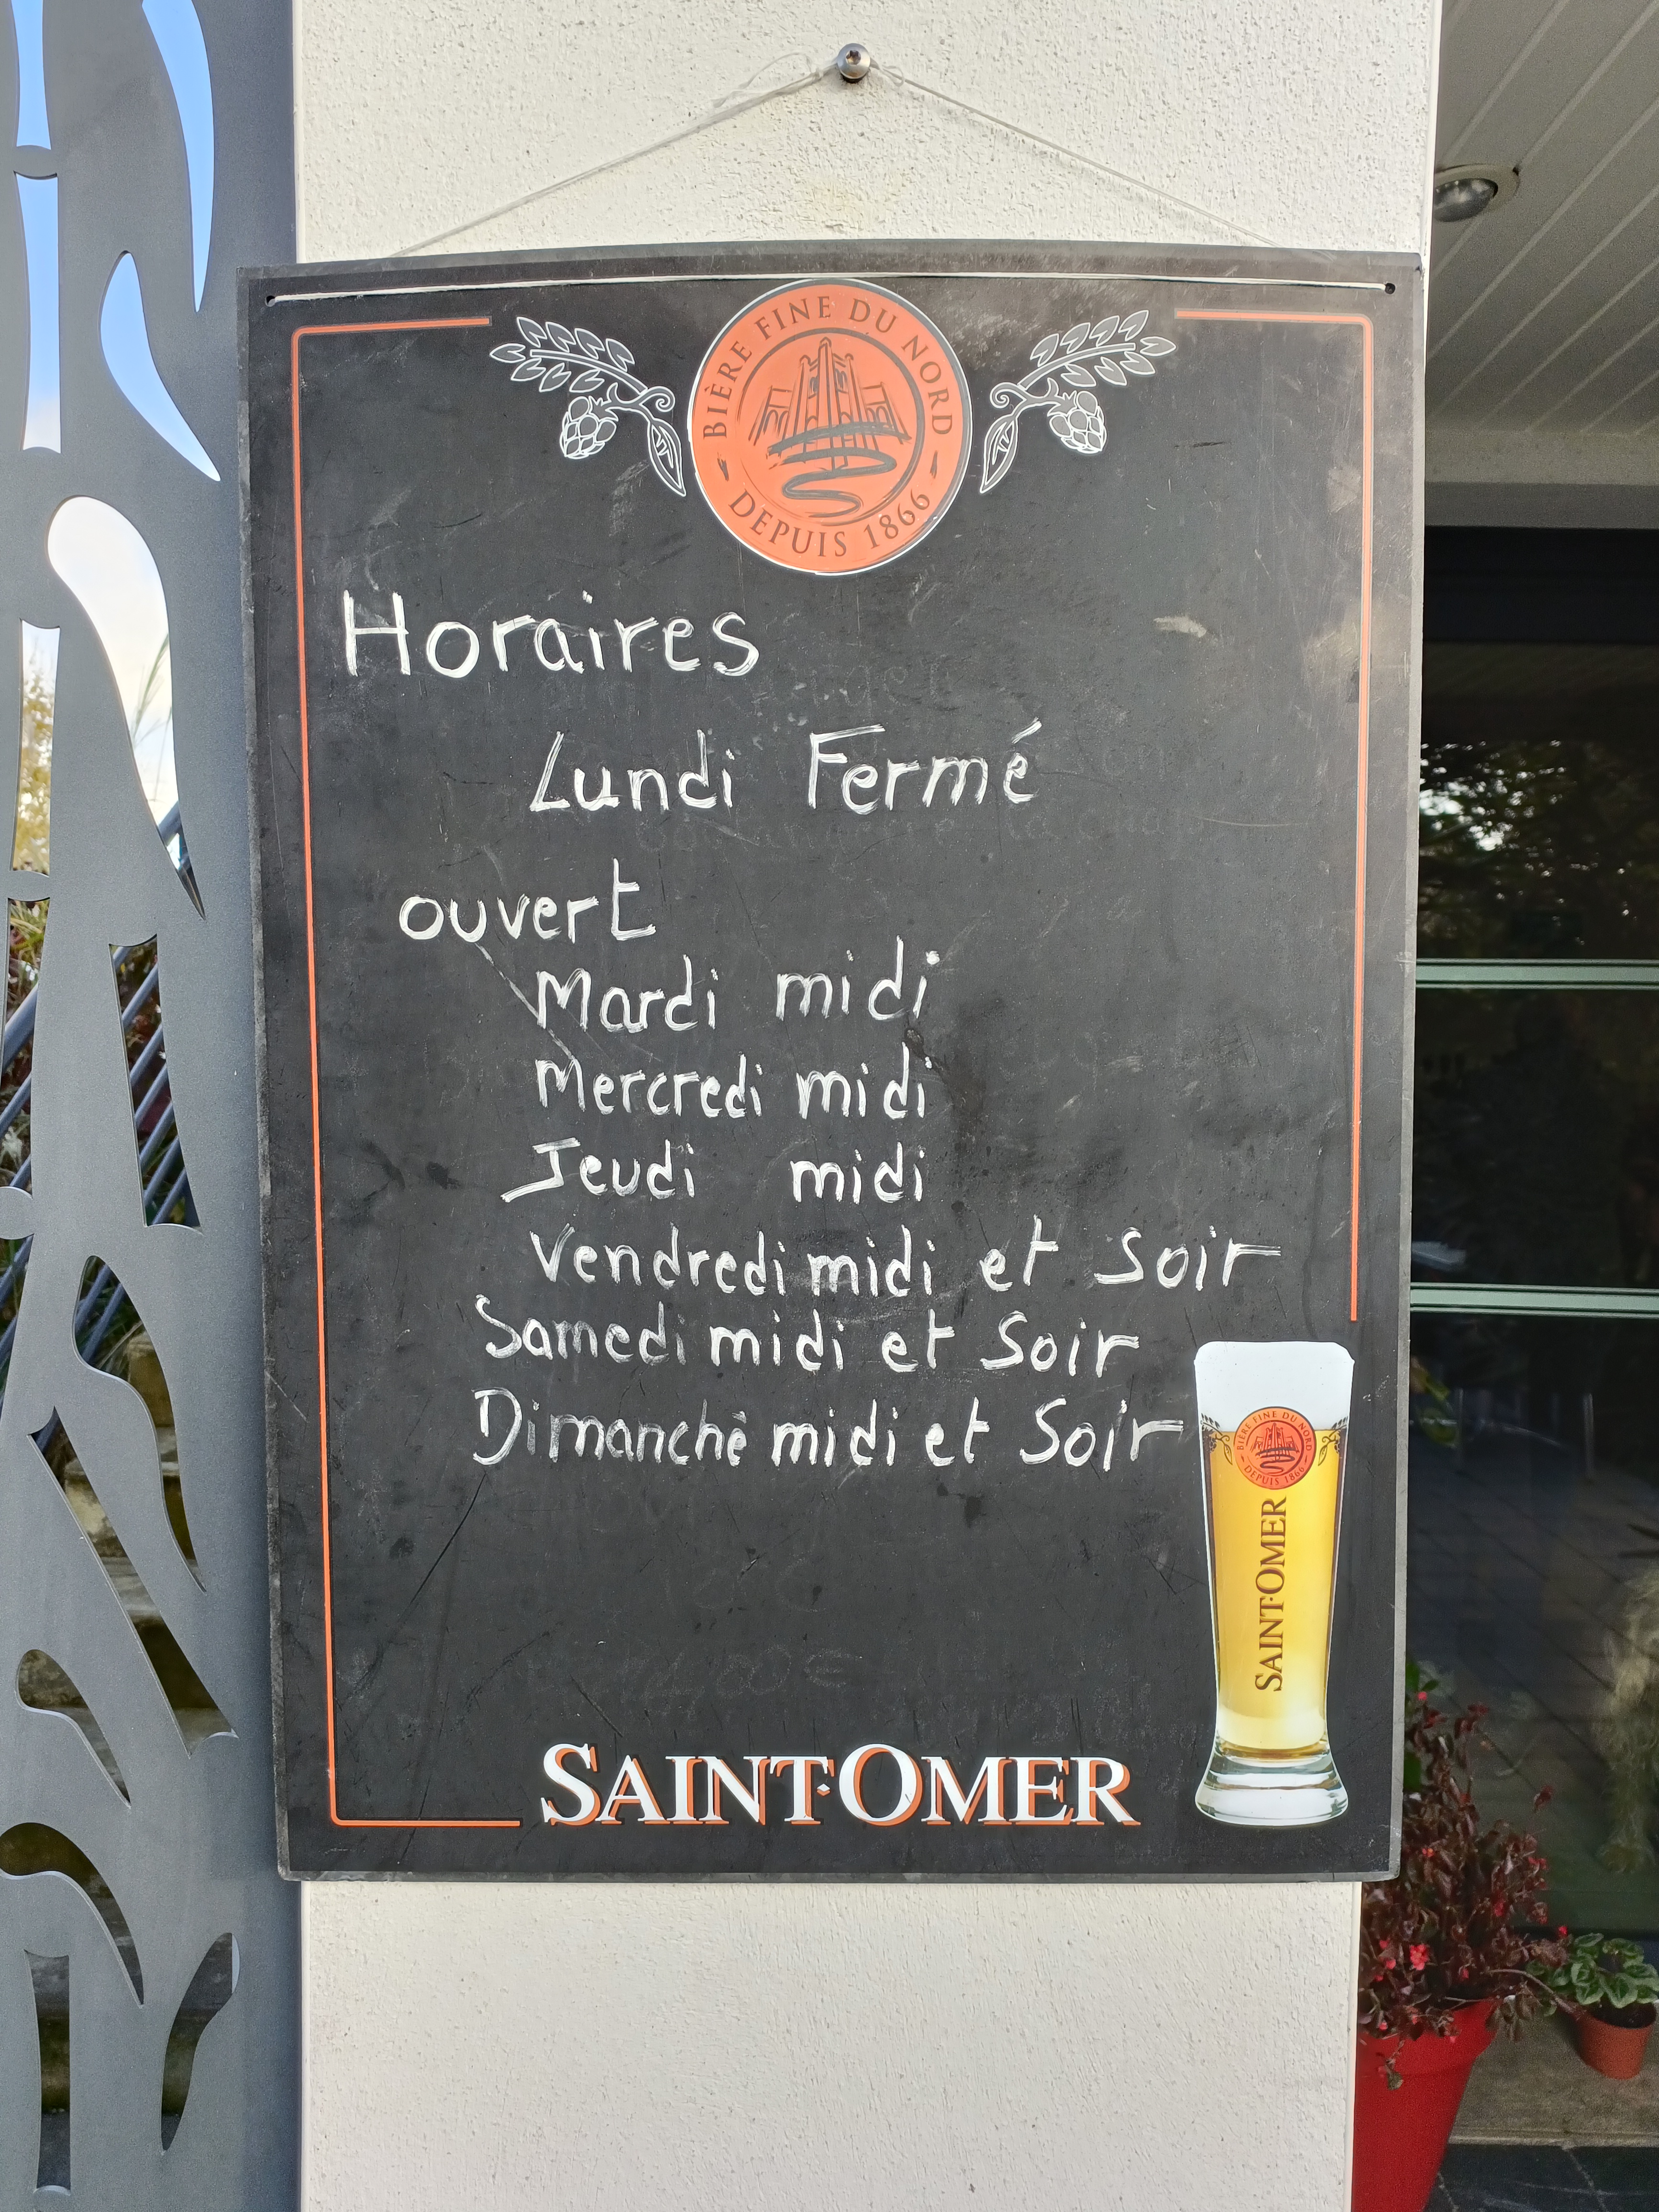 BIÈRE FINE DU NORD
DEPUIS 1866
Horaires
Lundi Fermé
ouvert
Mardi midi
Mercredi midi
Jeudi midi
Vendredi midi et Soir
Samedi midi et Soir
Dimanche midi et Soir
BIÈRE FINE DU NORD
DEPUIS 1866
SAINT-OMER
SAINT·OMER